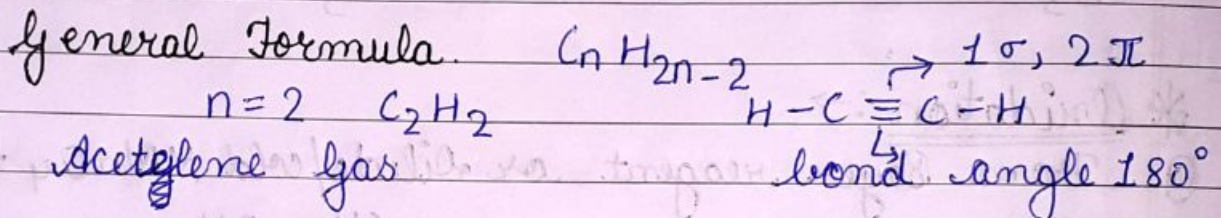 General Formula. CnH2n-2 → 1σ, 2π
n = 2 C2H2 H-C≡C-H
Acetylene Gas bond angle 180°